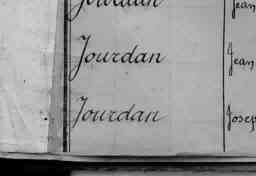 Jourdan Jean
Jourdan Jean
Jourdan Josep